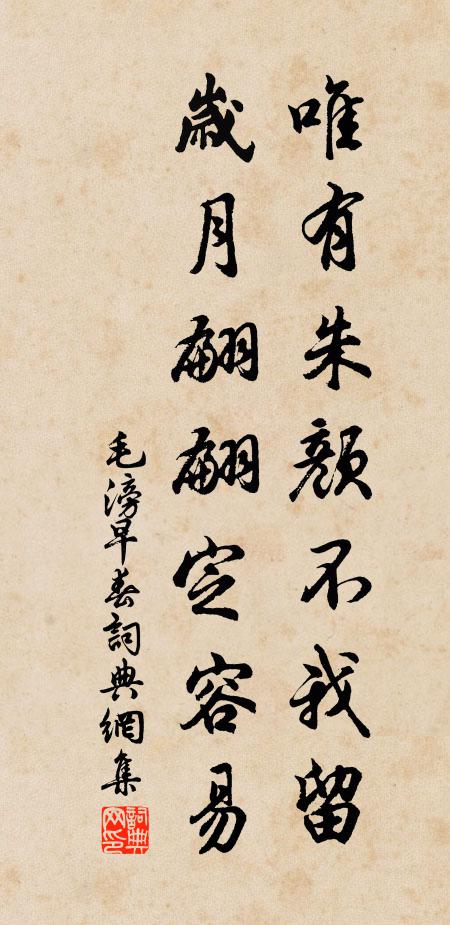 唯有朱顏不我留
歲月翩翩定容易
毛滂早春詞典網集
詞典網印